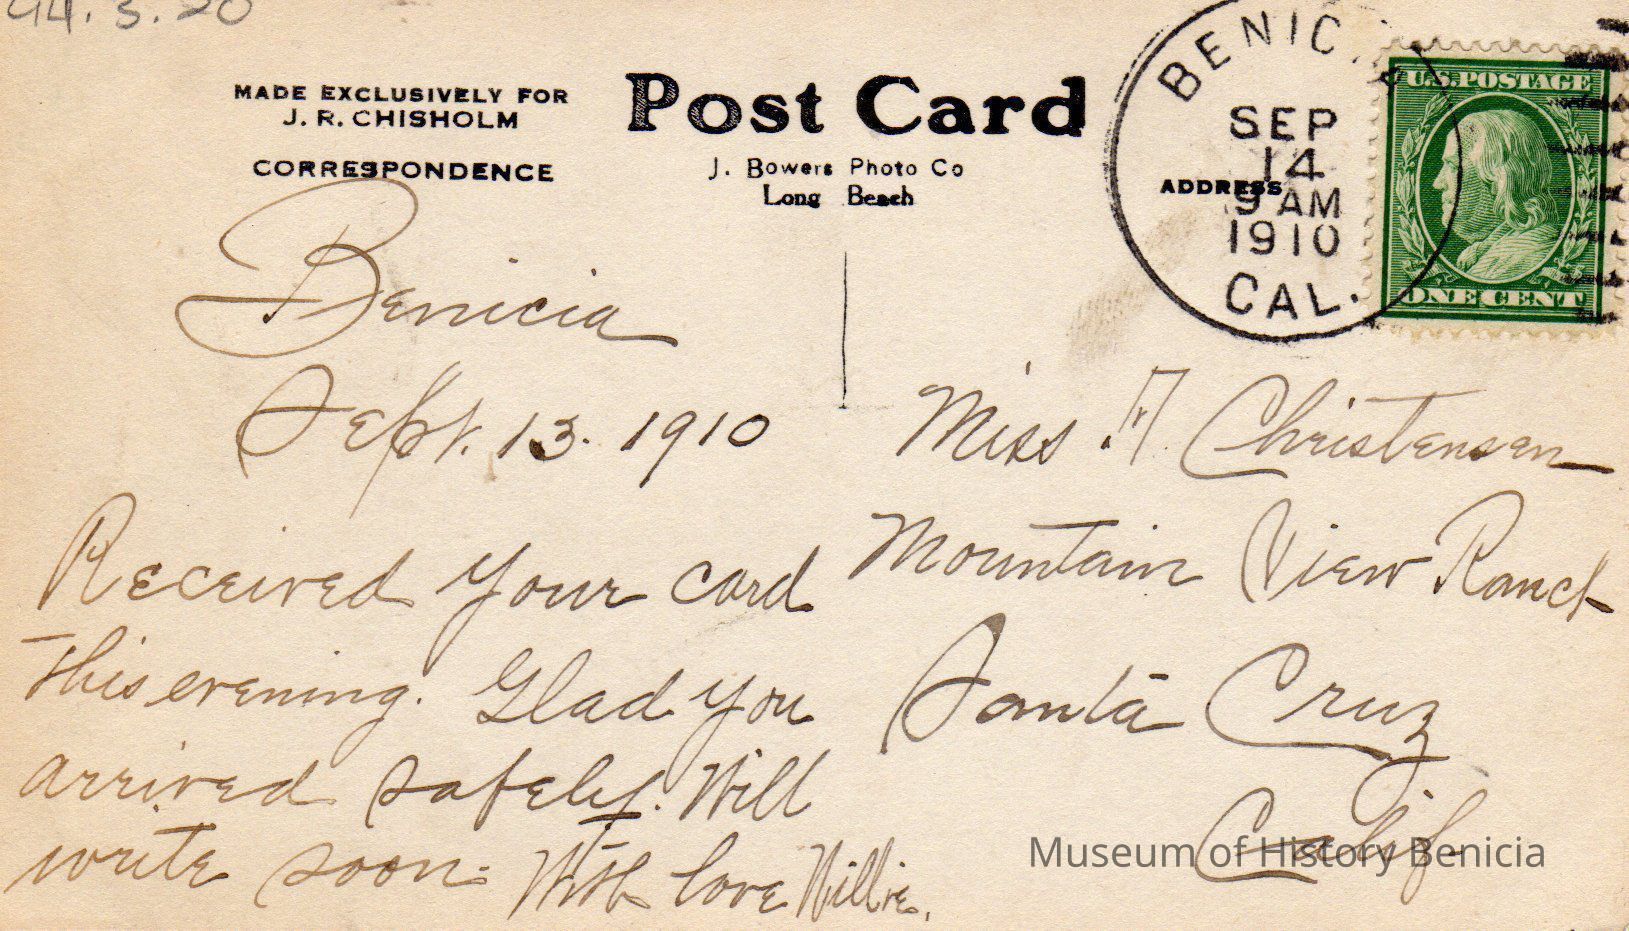 94.3.20
MADE EXCLUSIVELY FOR
J. R. CHISHOLM
CORRESPONDENCE
Post Card
J. Bowers Photo Co
Long Beach
ADDRESS
BENICIA
SEP
14
9 AM
1910
CAL.
U.S. POSTAGE
ONE CENT
Benicia
Sept. 13. 1910
Received your card
this evening. Glad you
arrived safely. Will
write soon. With love Willie.
Miss A Christensen
Mountain View Ranch
Santa Cruz
Calif
Museum of History Benicia